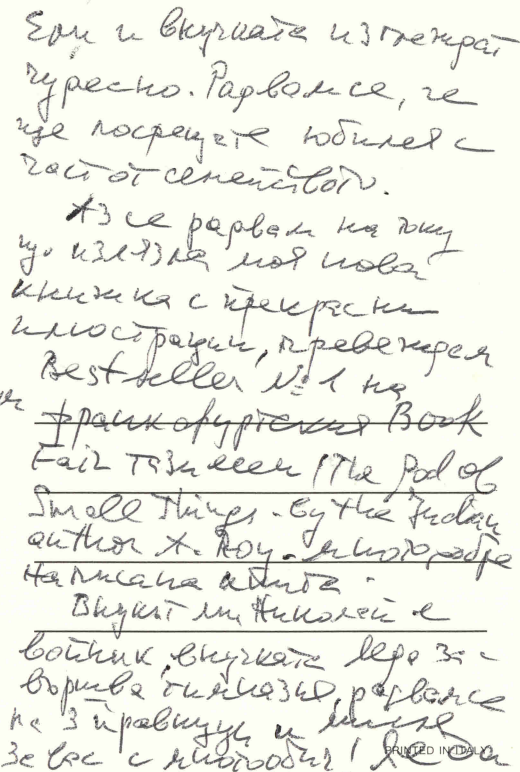 Ери и внучката изглеждат
чудесно. Радвам се, че
ще посрещнете юбилея с
част от семейството.
Аз се радвам на току
що излязла моя нова
книжка с прекрасни
илюстрации, превеждам
Bestseller №1 на
франкфуртския Book
Fair тази есен (The God of
Small Things - by the Indian
author A. Roy - много добре
написана книга.
Внукът ми Николай е
войник, внучката Леда за-
вършва гимназия, радвам се
на 3 правнуци и мисля
за вас с много обич! Леда
PRINTED IN ITALY